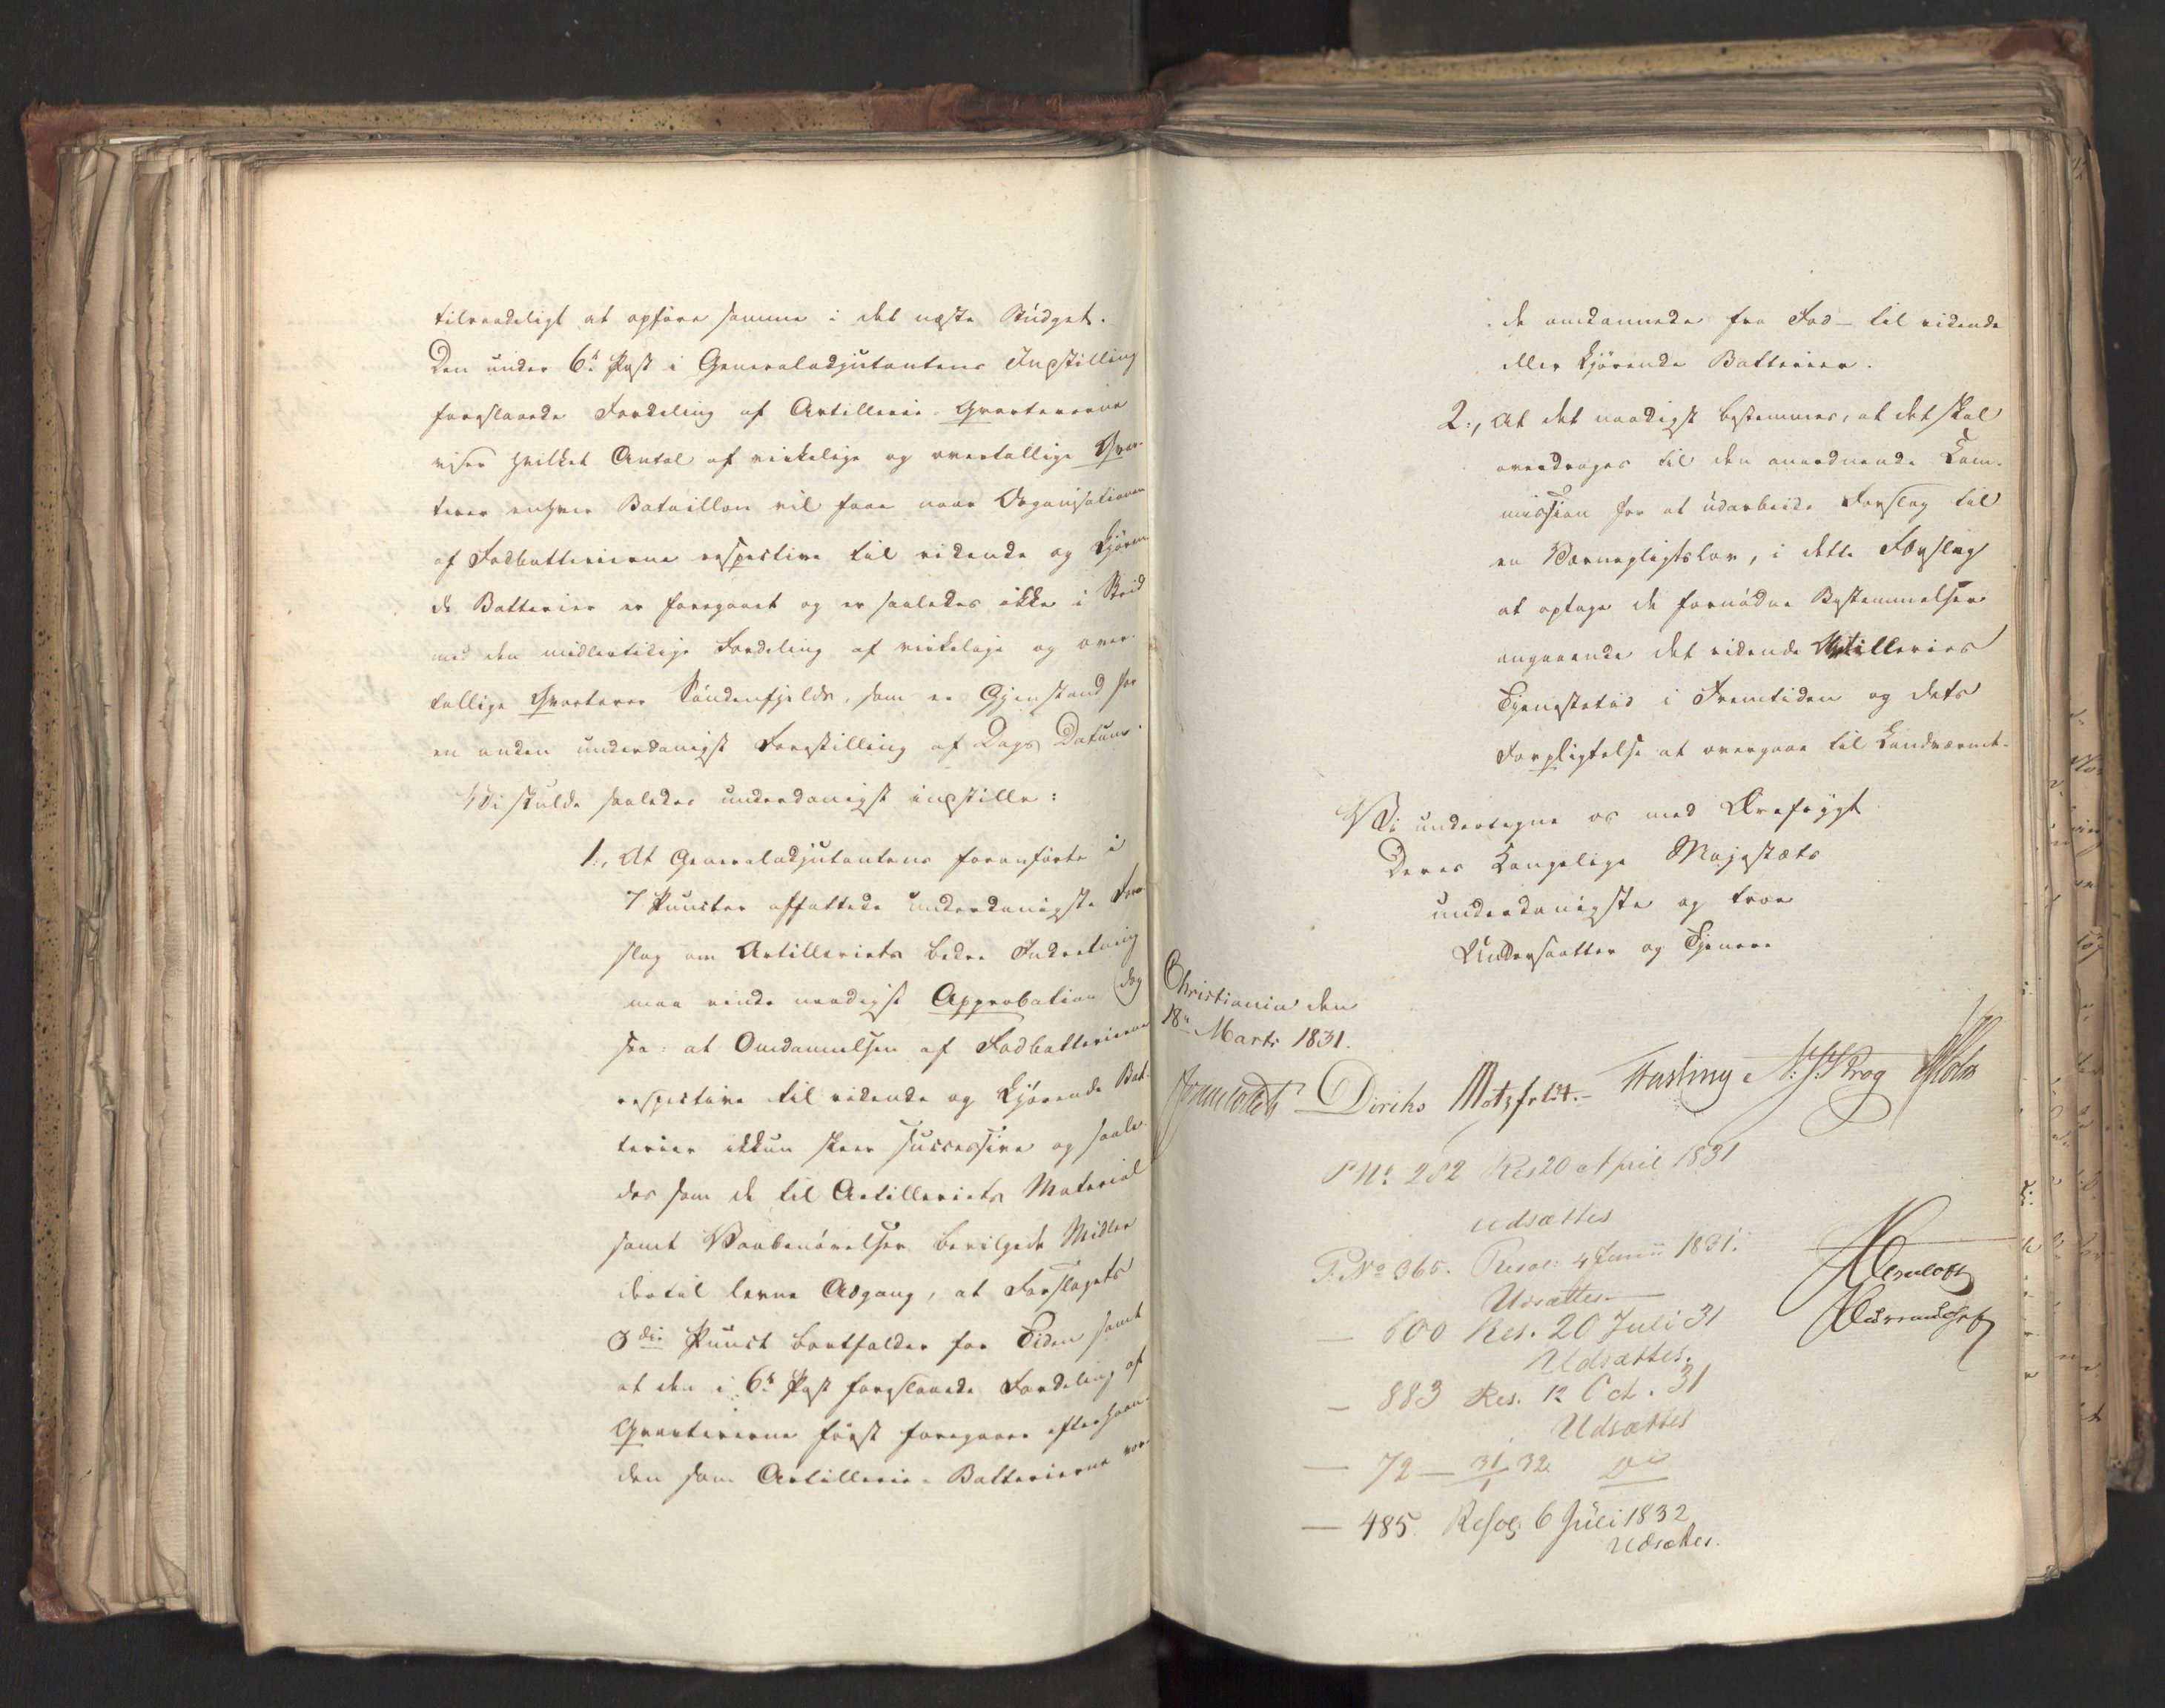 tilraadeligt at opføre samme i det næste Budget.
Den under 6te Post i Generaladjutantens Indstilling
foreslaaede Fordeling af Artillerie-Qvartererne
viser hvilket Antal af virkelige og overtallige Qvar-
terer enhver Bataillon vil faae naar Organisationen
af Fodbatterierne respective til ridende og kjøren-
de Batterier er foregaaet og er saaledes ikke i Strid
med den midlertidige Fordeling af virkelige og over-
tallige Qvarterer Søndenfjelds, som er Gjenstand for
en anden underdanigst Forestilling af Dags Datum.
Vi skulde saaledes underdanigst indstille:
1., At Generaladjutantens foranførte i
7 Puncter affattede underdanigste For-
slag om Artilleriets bedre Indretning
maa vinde naadigst Approbation dog
saa: at Omdannelsen af Fodbatterierne
respective til ridende og kjørende Bat-
terier ikkun skeer successive og saale-
des som de til Artilleriets Materiel
samt Vaabenøvelser bevilgede Midler
dertil levne Adgang, at Forslagets
3die Punct bortfalder for Tiden samt
at den i 6te Post foreslaaede Fordeling af
Qvartererne først foregaaer efterhaan-
den som Artillerie-Batterierne vor-
de omdannede fra Fod- til ridende
eller kjørende Batterier.
2., At det naadigst bestemmes, at det skal
overdrages til den anordnende Com-
mission for at udarbeide Forslag til
en Værnepligtslov, i dette Forslag
at optage de fornødne Bestemmelser
angaaende det ridende Artilleries
Tjenestetid i Fremtiden og dets
Forpligtelse at overgaae til Landværnet.
Vi undertegne os med Ærefrygt
Deres Kongelige Majestæts
underdanigste og troe
Undersaatter og Tjenere
Christiania den
18de Marts 1831.
Diriks Motzfeldt. Fasting N: J: Krog Holst
P No 282 Res 20 April 1831
udsættes
P. No 365. Resol: 4 Junii 1831.
Udsættes
— 600 Res. 20 Juli 31
Udsættes.
— 883 Res. 12 Oct. 31
Udsættes
— 72 — 31/1 32. do
— 485. Resol. 6 Juli 1832
udsættes.